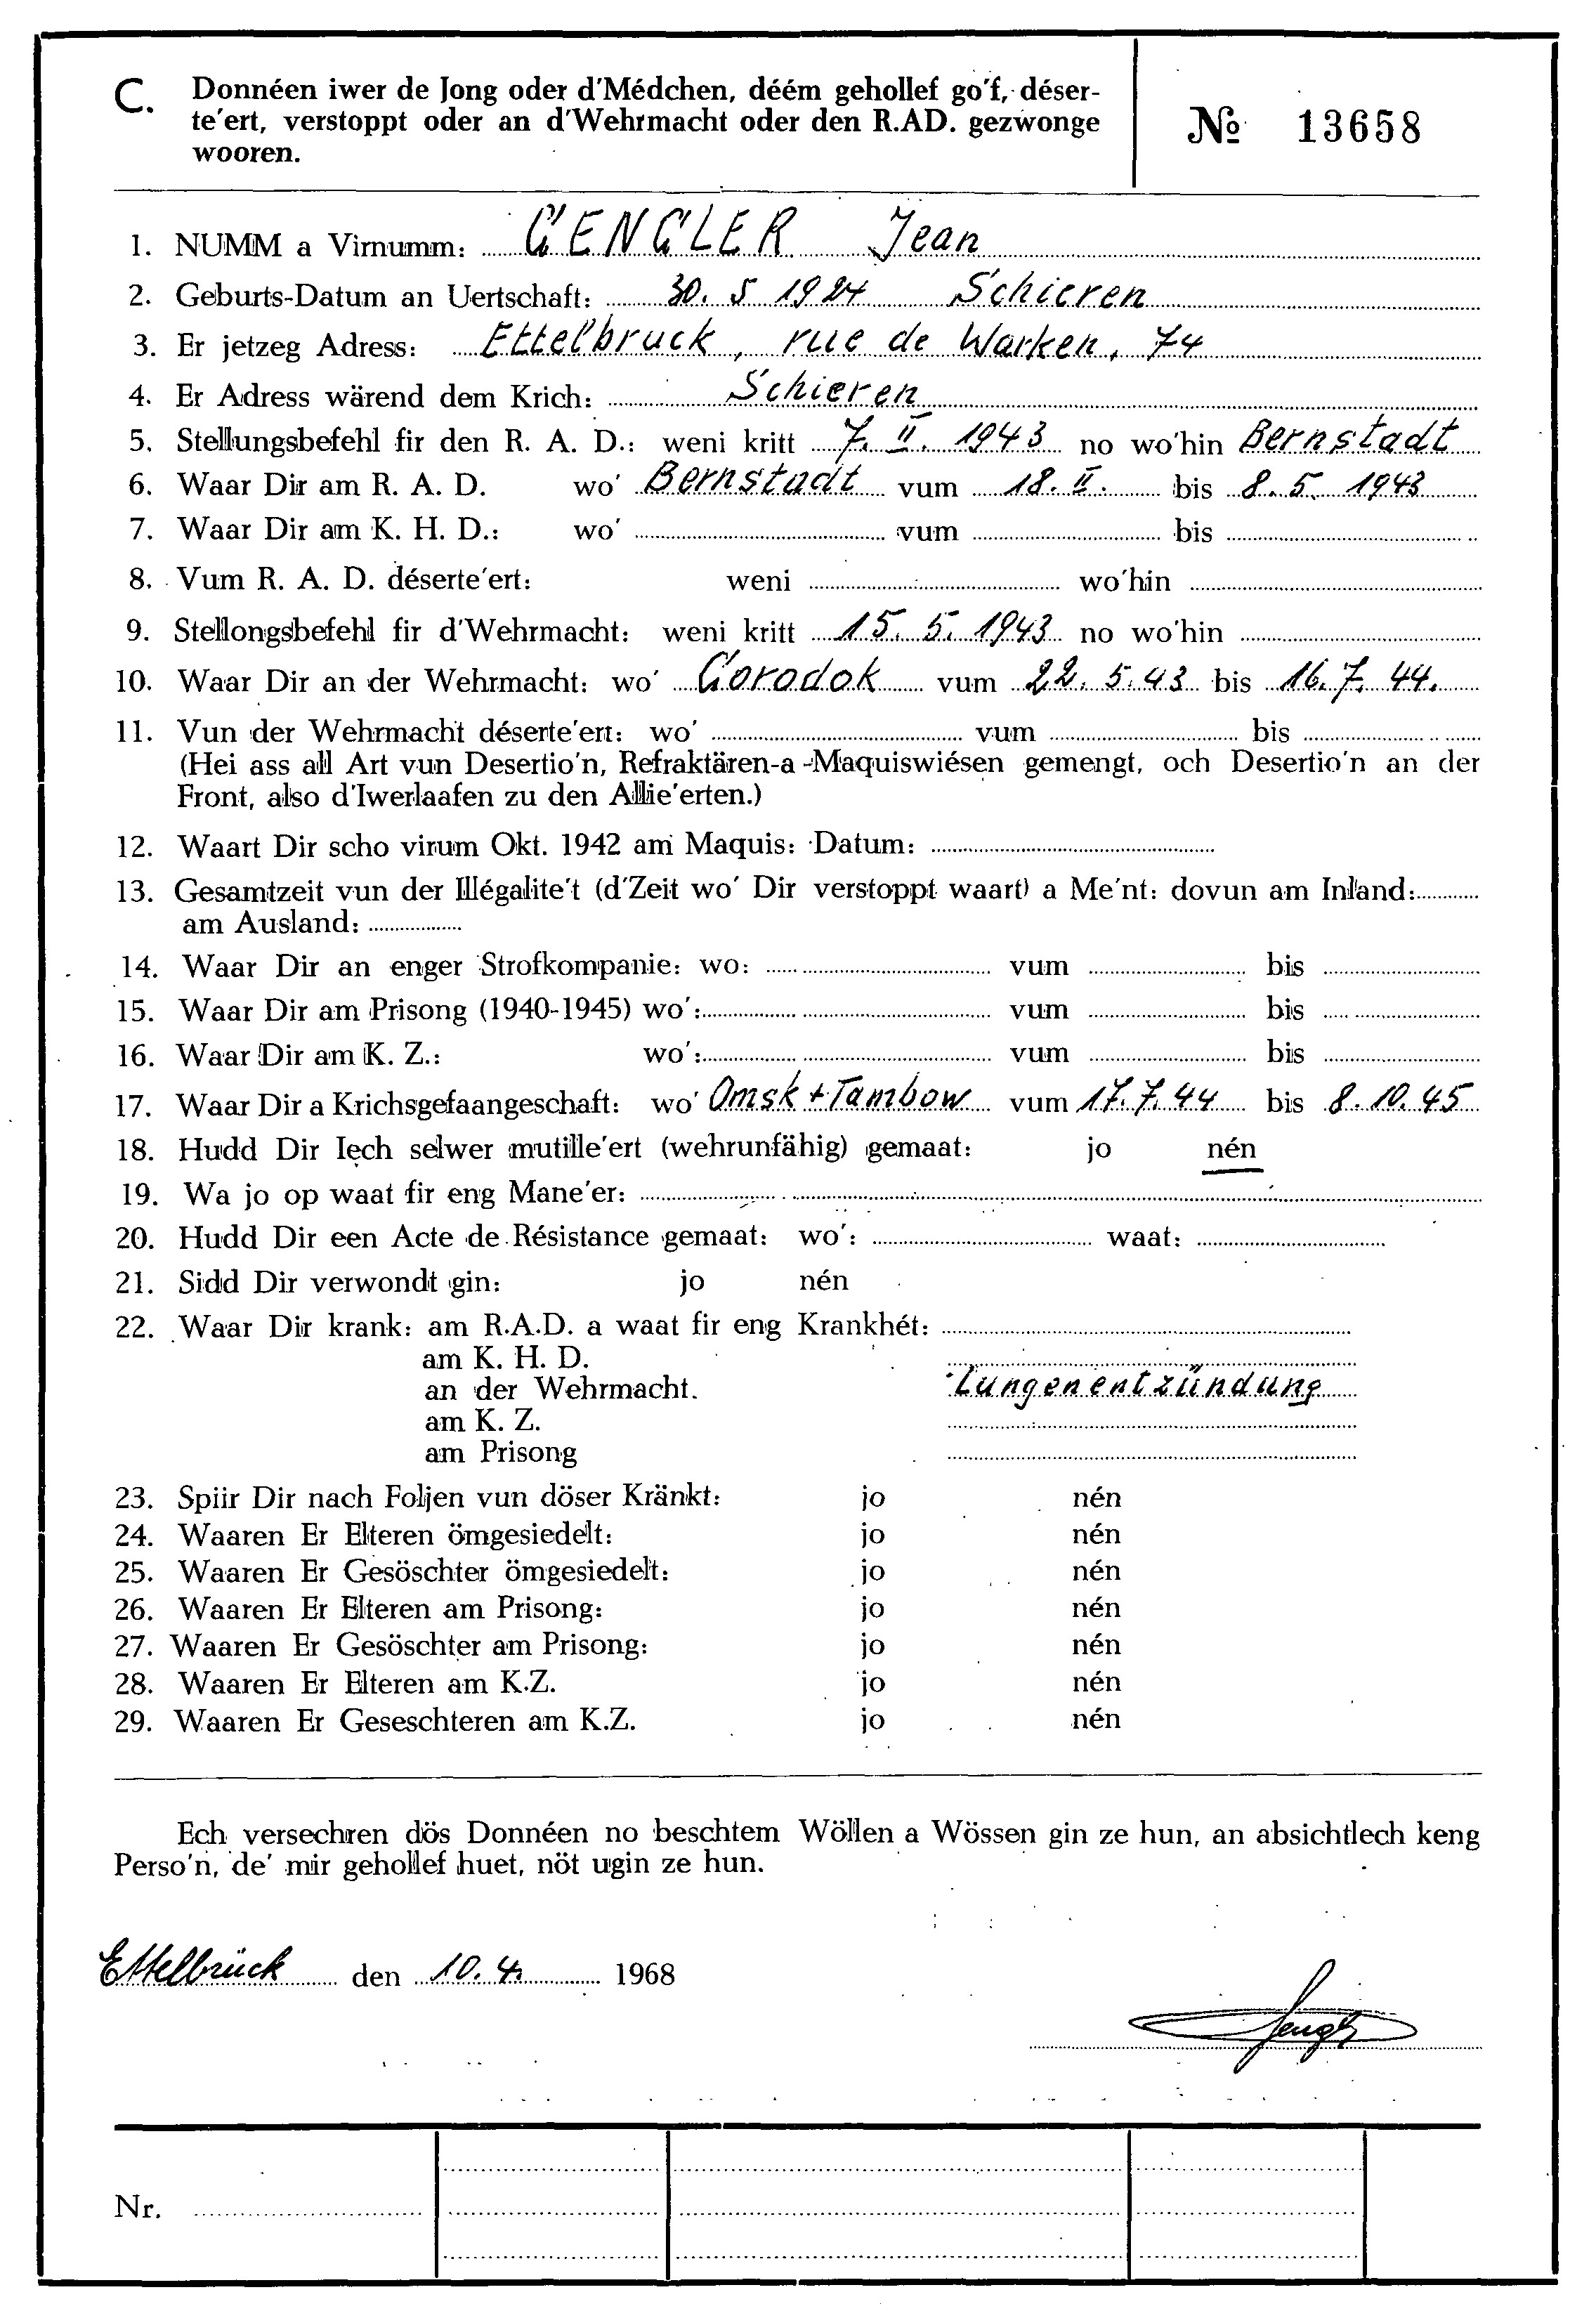 C. Donnéen iwer de Jong oder d'Médchen, déém gehollef go'f, déser-
te'ert, verstoppt oder an d'Wehrmacht oder den R.AD. gezwonge
wooren.
№ 13658
1. NUMM a Virnumm: GENGLER Jean
2. Geburts-Datum an Uertschaft: 30. 5 1924 Schieren
3. Er jetzeg Adress: Ettelbruck, rue de Warken, 74
4. Er Adress wärend dem Krich: Schieren
5. Stellungsbefehl fir den R. A. D.: weni kritt 7. II. 1943 no wo'hin Bernstadt
6. Waar Dir am R. A. D. wo' Bernstadt vum 18. II. bis 8. 5. 1943
7. Waar Dir am K. H. D.: wo' vum bis
8. Vum R. A. D. déserte'ert: weni wo'hin
9. Stellongsbefehl fir d'Wehrmacht: weni kritt 15. 5. 1943 no wo'hin
10. Waar Dir an der Wehrmacht: wo' Gorodok vum 22. 5. 43 bis 16. 7. 44.
11. Vun der Wehrmacht déserte'ert: wo' vum bis
(Hei ass all Art vun Desertio'n, Refraktären-a-Maquiswiésen gemengt, och Desertio'n an der
Front, also d'Iwerlaafen zu den Allie'erten.)
12. Waart Dir scho virum Okt. 1942 am Maquis: Datum:
13. Gesamtzeit vun der Illégalite't (d'Zeit wo' Dir verstoppt waart) a Me'nt: dovun am Inland:
am Ausland:
14. Waar Dir an enger Strofkompanie: wo: vum bis
15. Waar Dir am Prisong (1940-1945) wo': vum bis
16. Waar Dir am K. Z.: wo': vum bis
17. Waar Dir a Krichsgefaangeschaft: wo' Omsk + Tambow vum 17. 7. 44 bis 8. 10. 45
18. Hudd Dir Iech selwer mutille'ert (wehrunfähig) gemaat: jo nén
19. Wa jo op waat fir eng Mane'er:
20. Hudd Dir een Acte de Résistance gemaat: wo': waat:
21. Sidd Dir verwondt gin: jo nén
22. Waar Dir krank: am R.A.D. a waat fir eng Krankhét:
am K. H. D.
an der Wehrmacht. Lungenentzündung
am K. Z.
am Prisong
23. Spiir Dir nach Foljen vun döser Kränkt: jo nén
24. Waaren Er Elteren ömgesiedelt: jo nén
25. Waaren Er Gesöschter ömgesiedelt: jo nén
26. Waaren Er Elteren am Prisong: jo nén
27. Waaren Er Gesöschter am Prisong: jo nén
28. Waaren Er Elteren am K.Z. jo nén
29. Waaren Er Geseschteren am K.Z. jo nén
Ech versechren dös Donnéen no beschtem Wöllen a Wössen gin ze hun, an absichtlech keng
Perso'n, de' mir gehollef huet, nöt ugin ze hun.
Ettelbrück den 10. 4. 1968
Nr.